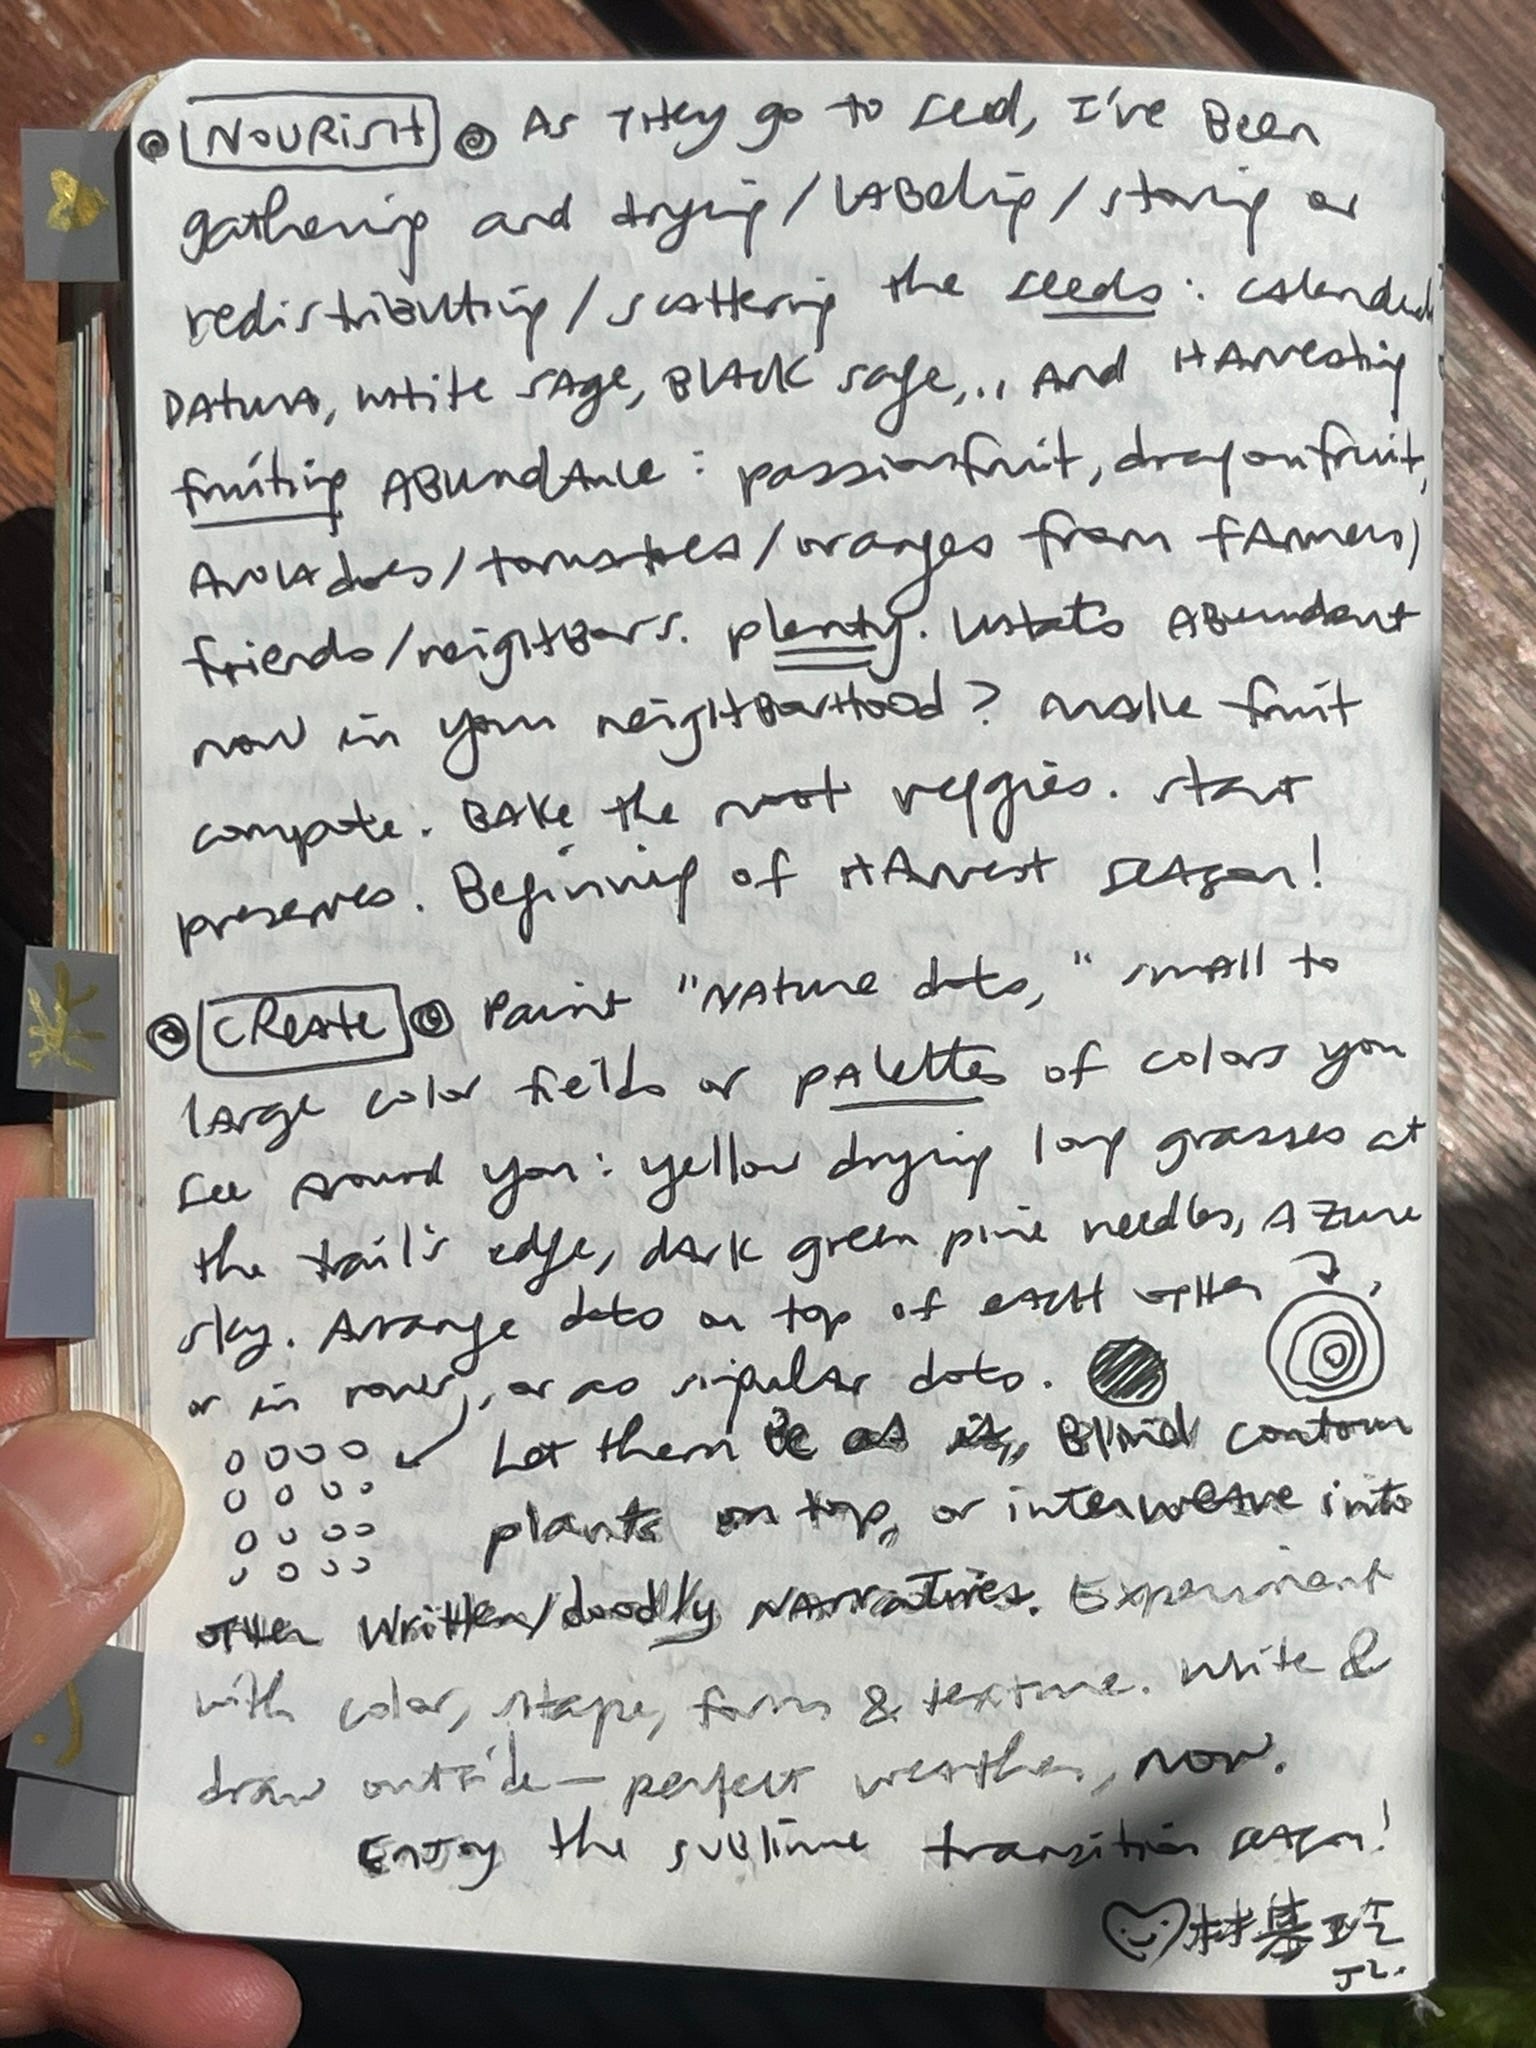 NOURISH As they go to seed, I've been
gathering and drying/labeling/storing or
redistributing/scattering the seeds: calendula
datura, white sage, black sage,... and harvesting
fruiting abundance: passionfruit, dragonfruit,
avocadoes/tomatoes/oranges from farmers/
friends/neighbors. plenty. What's abundant
now in your neighborhood? Make fruit
compote. Bake the root veggies. Start
preserves. Beginning of harvest season!
CREATE Paint "Nature dots," small to
large color fields or palettes of colors you
see around you: yellow drying long grasses at
the trail's edge, dark green pine needles, azure
sky. Arrange dots on top of each other
or in rows, or as singular dots.
Let them be as is, Blind contour
plants on top, or interweave into
other written/doodly narratives. Experiment
with color, shape, form & texture. Write &
draw outside — perfect weather, now.
Enjoy the sublime transition season!
林基
J2.